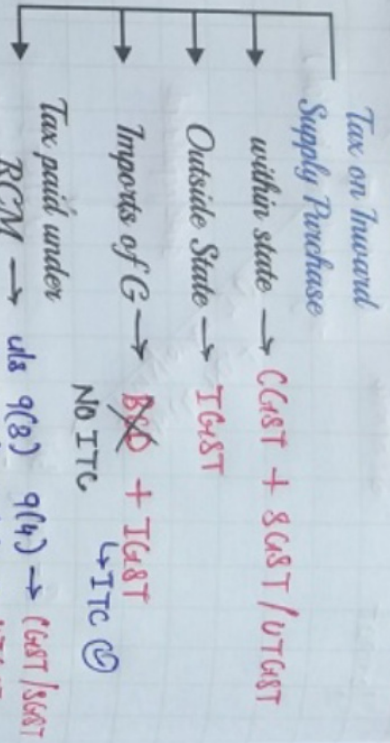 Tax on Inward
Supply Purchase
within state → CGST + SGST / UTGST
Outside State → IGST
Imports of G → BCD + IGST
NO ITC ↳ ITC ☺
Tax paid under
RCM → u/s 9(3) 9(4) → CGST/SGST